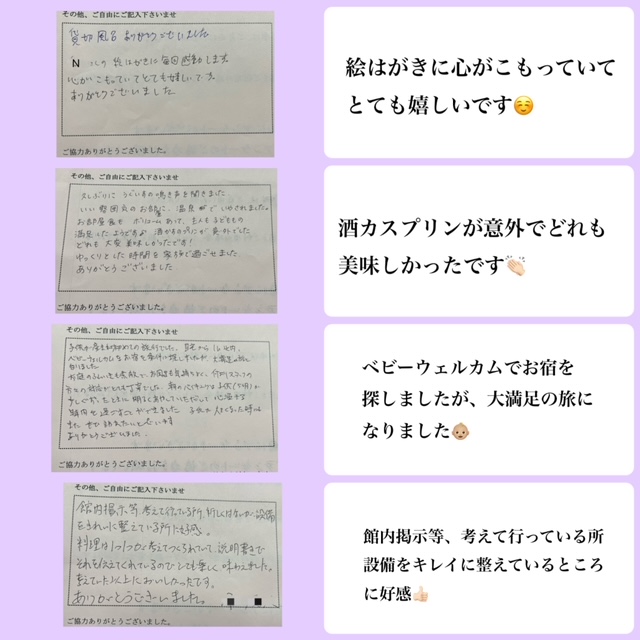 その他、ご自由にご記入下さいませ
貸切風呂ありがとうございました
Nルの絵はがきに毎回感動します
心がこもっていてとても嬉しいです
ありがとうございました
ご協力ありがとうございました。
絵はがきに心がこもっていて
とても嬉しいです☺️
その他、ご自由にご記入下さいませ
久しぶりにうぐいすの鳴き声を聞きました
いい雰囲気のお部屋に、温泉でいやされました。
お部屋食もボリュームあって、主人も子どもも
満足したようですよ 酒かすのプリンが意外でした
どれも大変美味しかったです!
ゆっくりとした時間を家族で過ごせました。
ありがとうございました
ご協力ありがとうございました。
酒カスプリンが意外でどれも
美味しかったです👏🏻
その他、ご自由にご記入下さいませ
子供が産まれ初めての旅行でした。
ベビーウェルカムなお宿を条件に探しましたが、大満足の旅に
なりました。
ありがとうございました。
ご協力ありがとうございました。
ベビーウェルカムでお宿を
探しましたが、大満足の旅に
なりました👶🏼
その他、ご自由にご記入下さいませ
館内掲示等、考えて行っている所、新しくはないが設備
をきれいに整えている所に好感。
料理は1つ1つが考えてつくられていて、説明書きで
それを伝えてくれているのでとても楽しく味わえました。
考えていた以上においしかったです。
ありがとうございました。
ご協力ありがとうございました。
館内掲示等、考えて行っている所
設備をキレイに整えているところ
に好感👍🏻